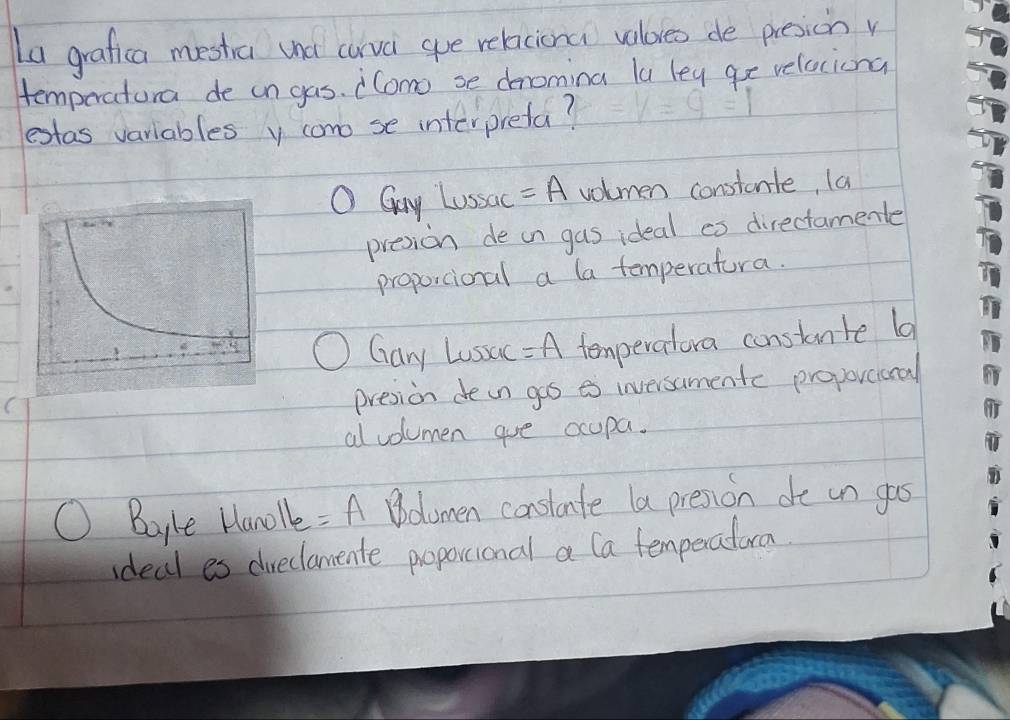 La grafica mestra una curva que relaciona valores de presión y
temperatura de un gas. ¿Como se denomina la ley qe relaciona
estas variables y como se interpreta?
O Gay Lussac = A volumen constante, la
presión de un gas ideal es directamente
proporcional a la temperatura.
O Gay Lussac = A temperatura constante la
presión de un gas es inversamente proporcional
al volumen que ocupa.
O Boyle Mariotte = A Volumen constante la presión de un gas
ideal es directamente proporcional a la temperatura.